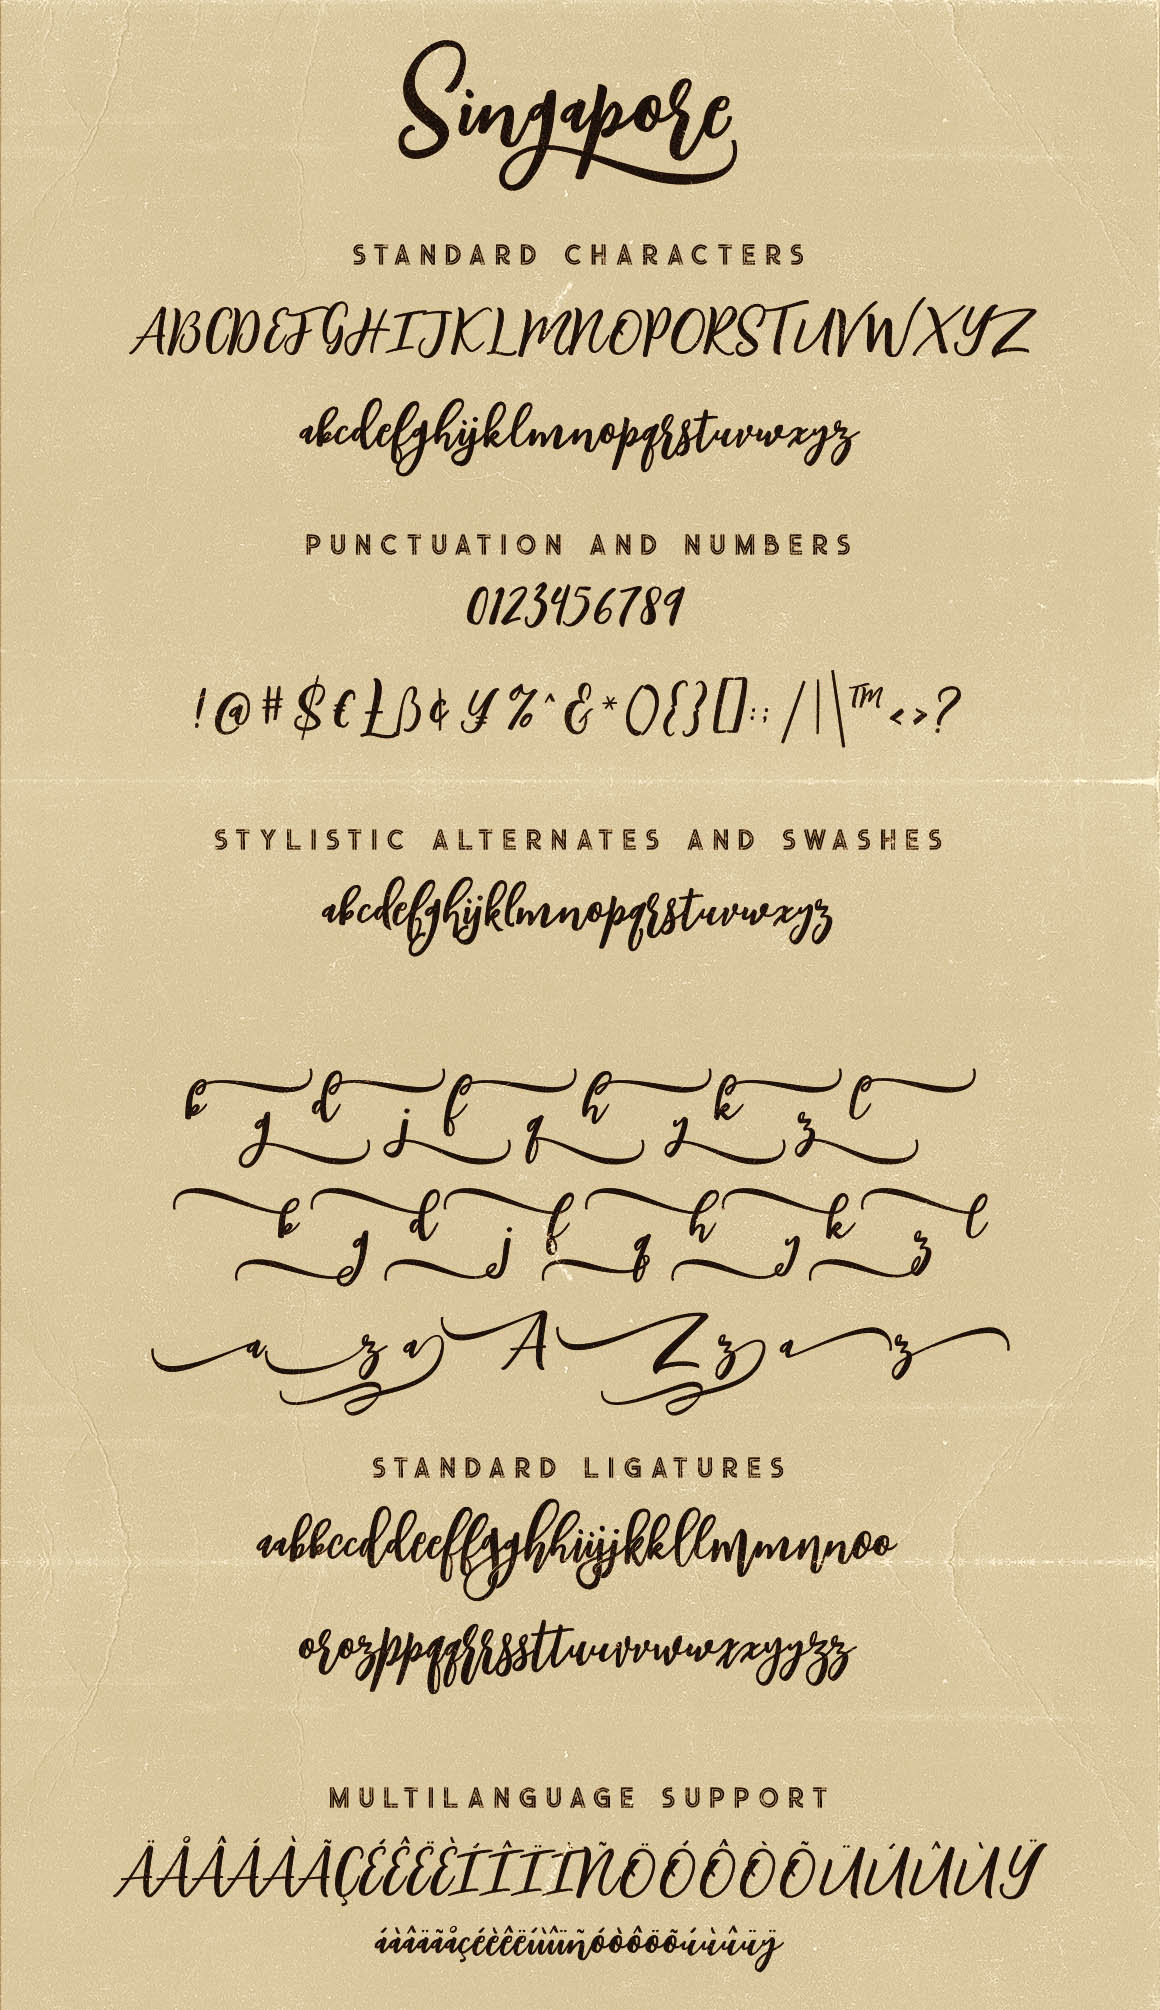 Singapore
STANDARD CHARACTERS
ABCDEFGHIJKLMNOPQRSTUVWXYZ
abcdefghijklmnopqrstuvwxyz
PUNCTUATION AND NUMBERS
0123456789
!@#$€£ß¢¥%^&*(){}[]:;/|\™<>?
STYLISTIC ALTERNATES AND SWASHES
abcdefghijklmnopqrstuvwxyz
b d f h k l
g j q y z
b d f h k l
g j q y z
a z a A Z z a z
STANDARD LIGATURES
aabbccddeeffgghhiijjkkllmmnnoo
orozppqqrrssttuuvvwwxxyyzz
MULTILANGUAGE SUPPORT
ÄÅÂÁÀÃÇÉÊËÈÍÎÏÌÑÖÓÔÒÕÜÚÛÙŸ
áàâäãåçéèêëíìîïñóòôöõúùûüÿ